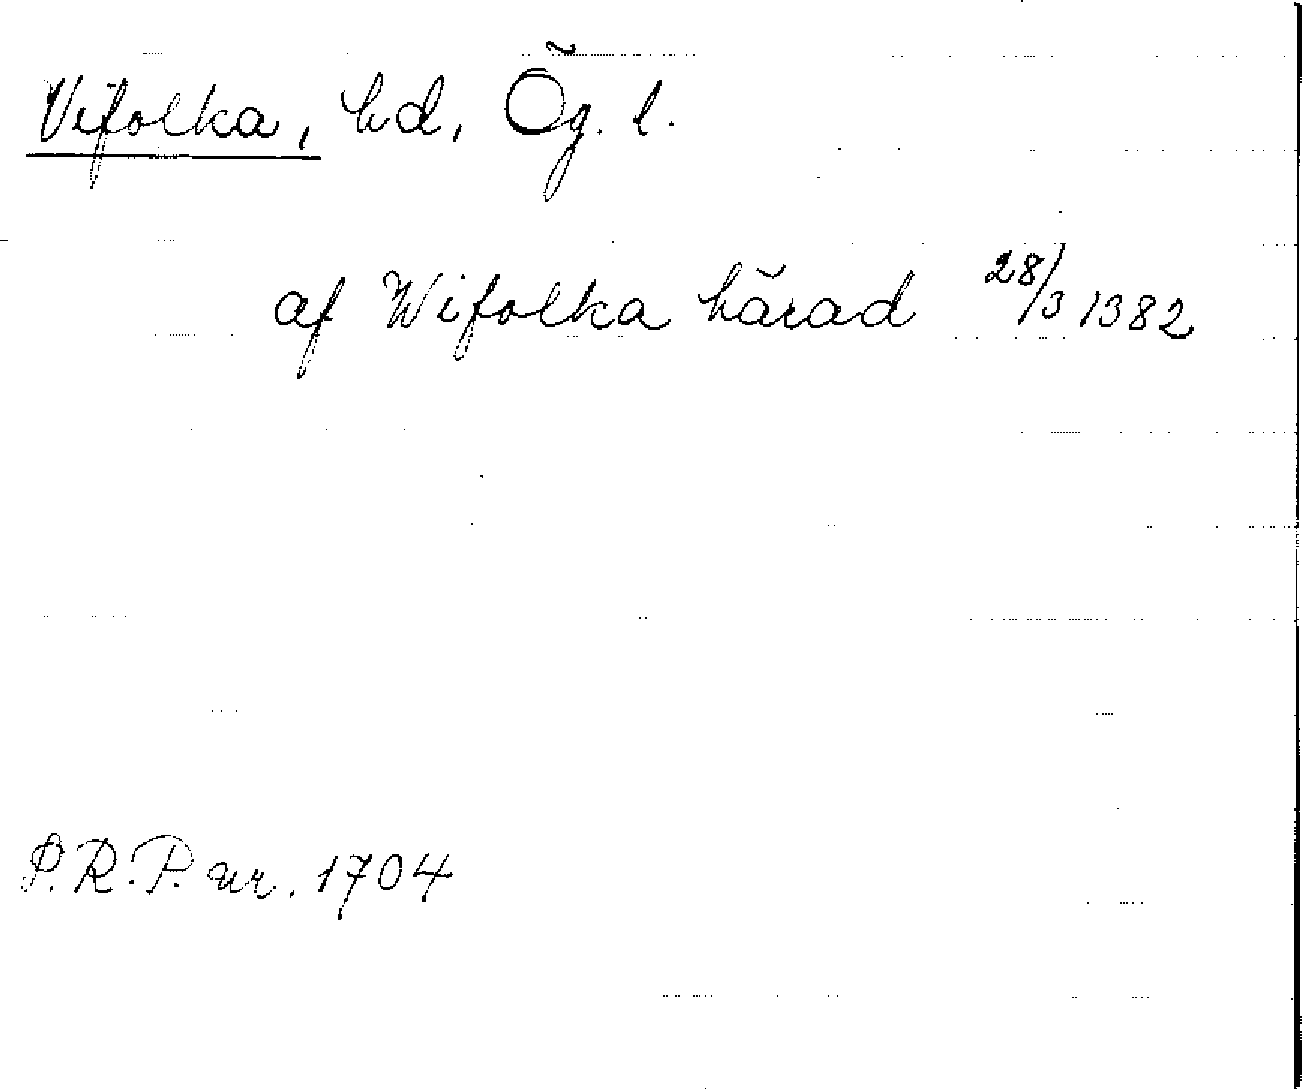 Vifolka, hd, Ög. l.
af Wifolka härad 28/3 1382
P.R.P. nr. 1704